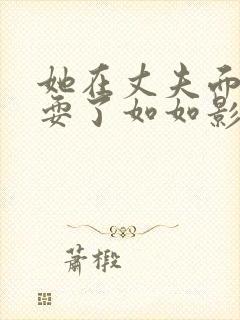 她在丈夫而
耍了如如影
萧椴